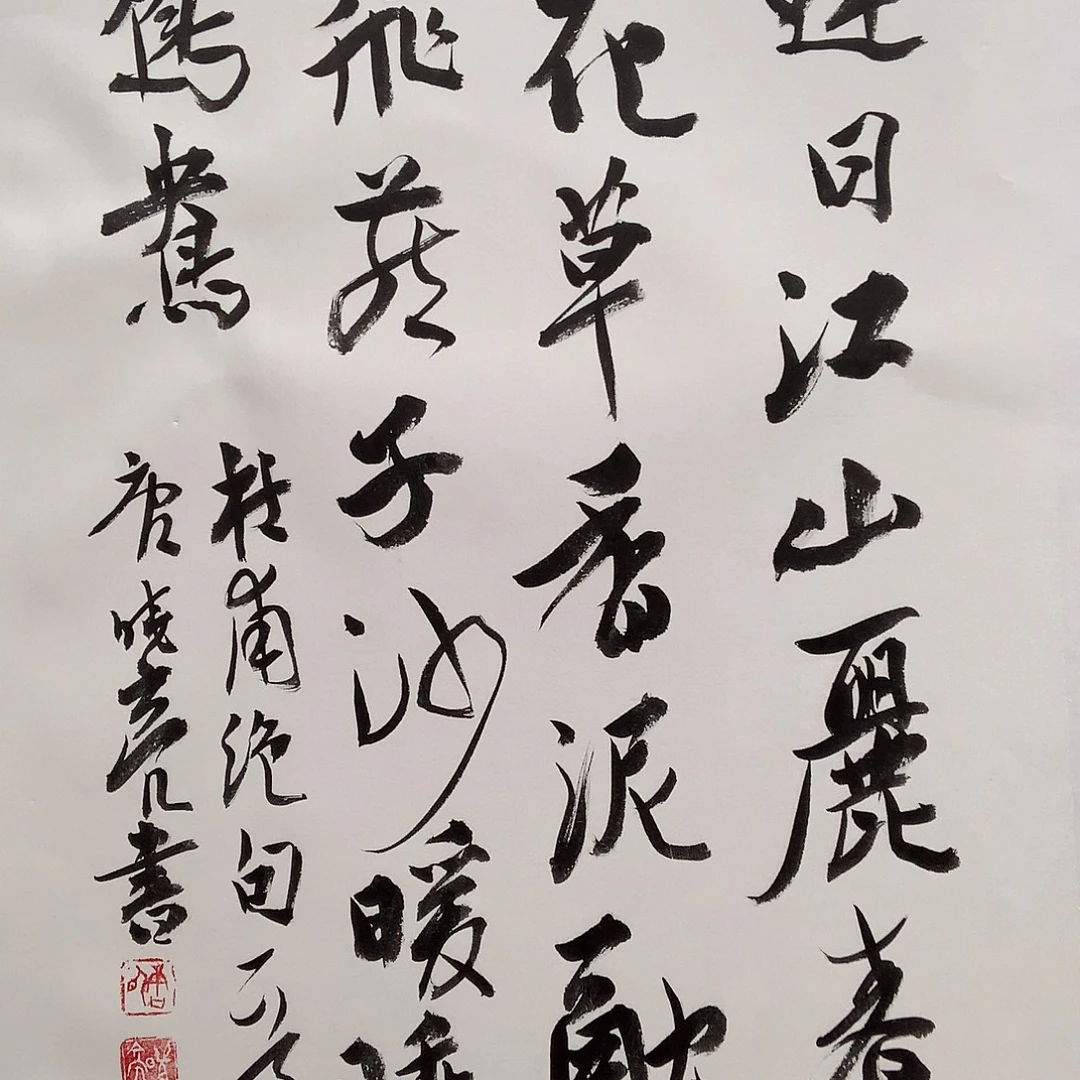 日江山麗春
花草香泥融
飛燕子沙暖
鴛鴦
杜甫绝句一首
唐晓彦書